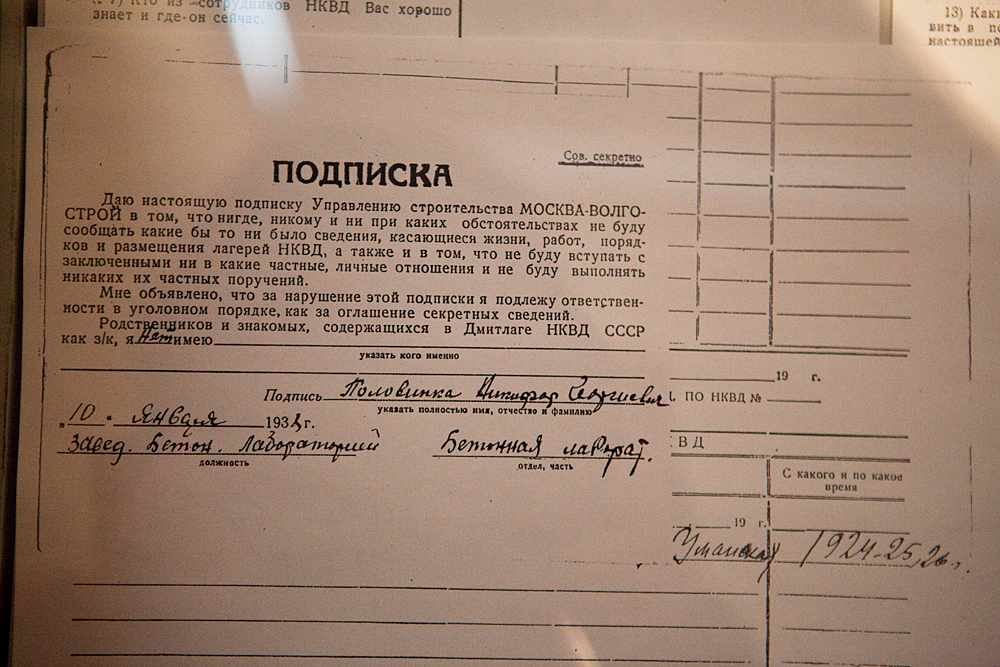 7) Кто из сотрудников НКВД Вас хорошо
знает и где он сейчас.
13)
вить в
настоящей
Сов. секретно
ПОДПИСКА
Даю настоящую подписку Управлению строительства МОСКВА-ВОЛГО-
СТРОЙ в том, что нигде, никому и ни при каких обстоятельствах не буду
сообщать какие бы то ни было сведения, касающиеся жизни, работ, поряд-
ков и размещения лагерей НКВД, а также и в том, что не буду вступать с
заключенными ни в какие частные, личные отношения и не буду выполнять
никаких их частных поручений.
Мне объявлено, что за нарушение этой подписки я подлежу ответствен-
ности в уголовном порядке, как за оглашение секретных сведений.
Родственников и знакомых, содержащихся в Дмитлаге НКВД СССР
как з/к, я нет имею
указать кого именно
19 г.
Подпись Половинка Никифор Георгиевич
указать полностью имя, отчество и фамилию
ПО НКВД №
„10" Января 193 г.
Завед. Бетон. Лабораторией Бетонная лаборат.
должность отдел, часть
ВД
С какого и по какое
время
19 г.
Уманская 1924-25, 26 г.